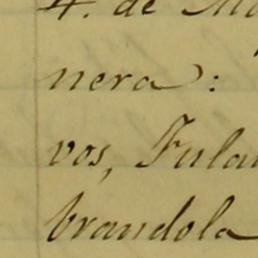 4. de Ma
nera:
vos, Fula
brandola